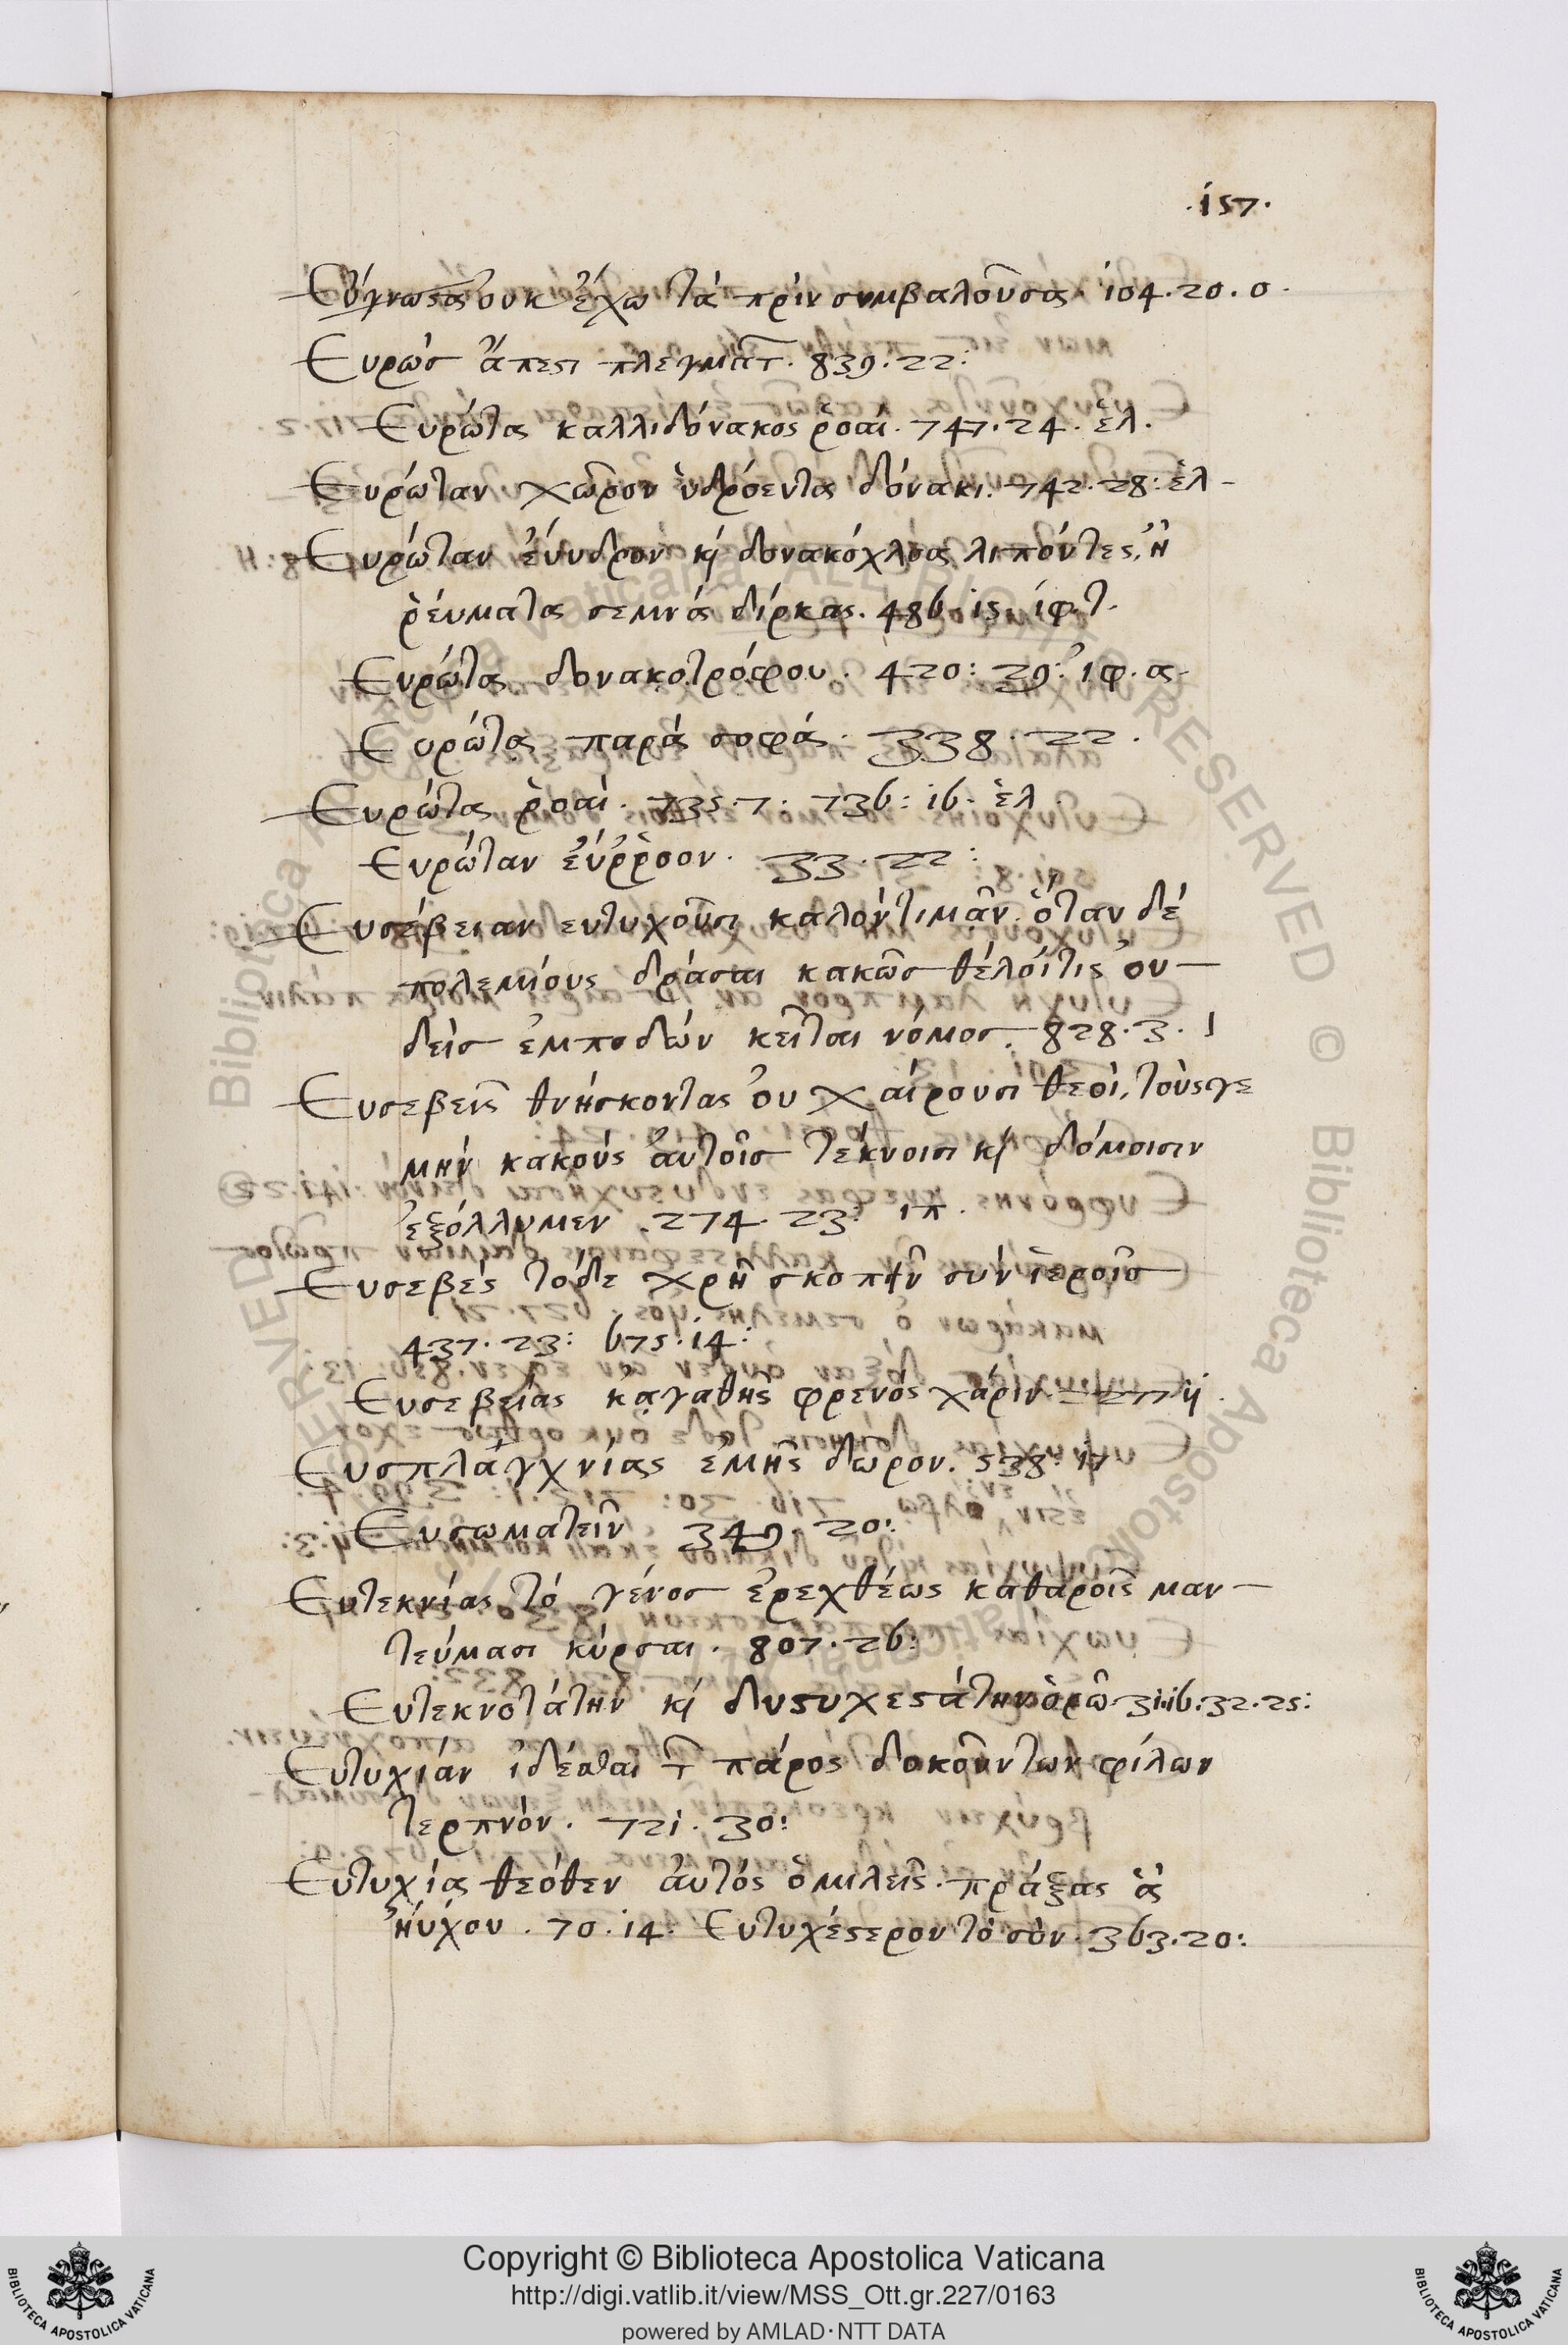 .157.
Εὔγνωστα οὐκ ἔχω τὰ πρὶν συμβαλοῦσα. 104.20.ο.
Ευρὼσ ἄπεστι πλεγμάτ. 839.22:
Ευρώτα καλλιδόνακος ῥοαί. 747.24. ἑλ.
Ευρώταν χῶρον ὑδρόεντα δόνακι. 742.28: ἑλ-
Ευρώταν ἔυυδρον κὶ δονακόχλοα λιπόντες, ἢ
ῥέυματα σεμνὰ δίρκας. 486.15. ἰφ.τ.
Ευρώτα δονακοτρόφου. 420: 29: ἰφ.α.
Ευρώτα παρὰ σοφά. 338.22.
Ευρώτα ῥοαί. 735.7. 736: 16. ἑλ.
Ευρώταν ἐύῤῥοον. 33.22:
Ευσέβειαν ευτυχοῦσι καλὸν τιμᾶν. ὅταν δὲ
πολεμίους δρᾶσαι κακῶσ θέλῃ τις οὐ-
δεὶσ ἐμποδὼν κεῖται νόμοσ. 828.3.
Ευσεβεῖς θνήσκοντας οὐ χαίρουσι θεοὶ, τούς γε
μὴν κακοὺς ἀυτοῖσ τέκνοισι κὶ δόμοισιν
ἐξόλλυμεν. 274.23: ιπ.
Ευσεβὲς τόδε χρὴ σκοπεῖν σὺν ἱεροῖσ
437.23: 675:14:
Ευσεβείας κἀγαθῆς φρενὸς χάριν. 277 ij.
Ευσπλαγχνίας ἐμῆς δῶρον. 538. 17
Ευσωματεῖν 349. 20:
Ευτεκνίας τὸ γένοσ ἐρεχθέως καθαροῖς μαν-
τεύμασι κύρσαι. 807.26:
Ευτεκνοτάτην κὶ δυςυχεςάτην ὁρῶ 31.16.32.25:
Ευτυχίαν ἰδέσθαι τ πάρος δοκοῦντων φίλων
τερπνόν. 721. 30:
Ευτυχίας θεόθεν ἀυτὸς ὁμιλεῖς. πράξας ἃ
ἠύχου. 70.14. Ευτυχέςερον τὸ σὸν. 363.20:
Copyright © Biblioteca Apostolica Vaticana
http://digi.vatlib.it/view/MSS_Ott.gr.227/0163
powered by AMLAD·NTT DATA
BIBLIOTECA APOSTOLICA VATICANA
BIBLIOTECA APOSTOLICA VATICANA